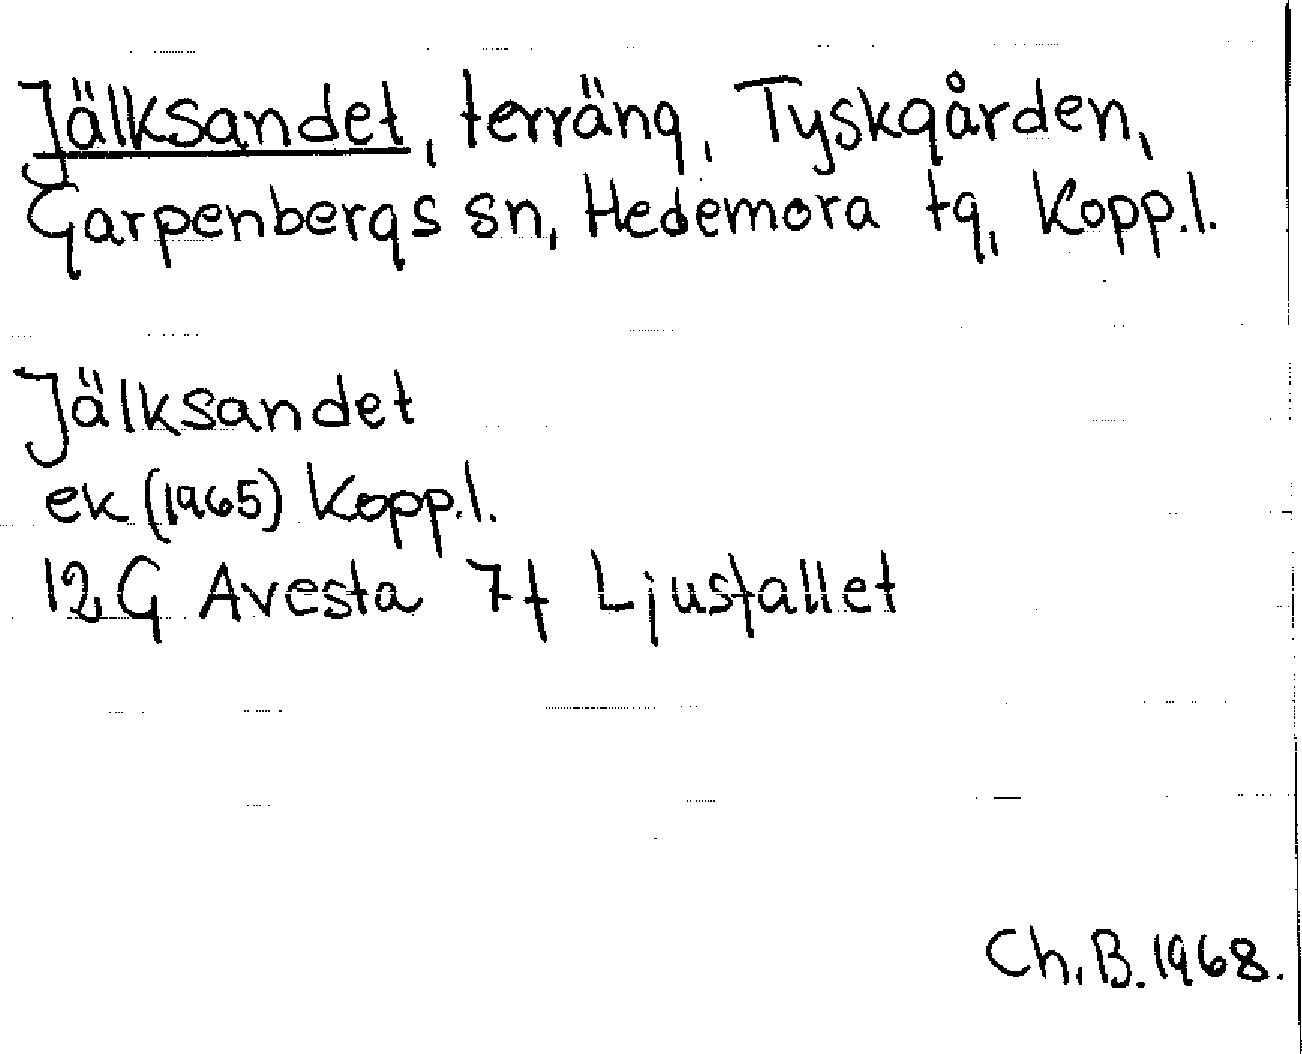 Jälksandet, terräng, Tyskgården,
Garpenbergs sn, Hedemora tg, Kopp.l.
Jälksandet
ek (1965) Kopp.l.
12G Avesta 7f Ljusfallet
Ch.B.1968.